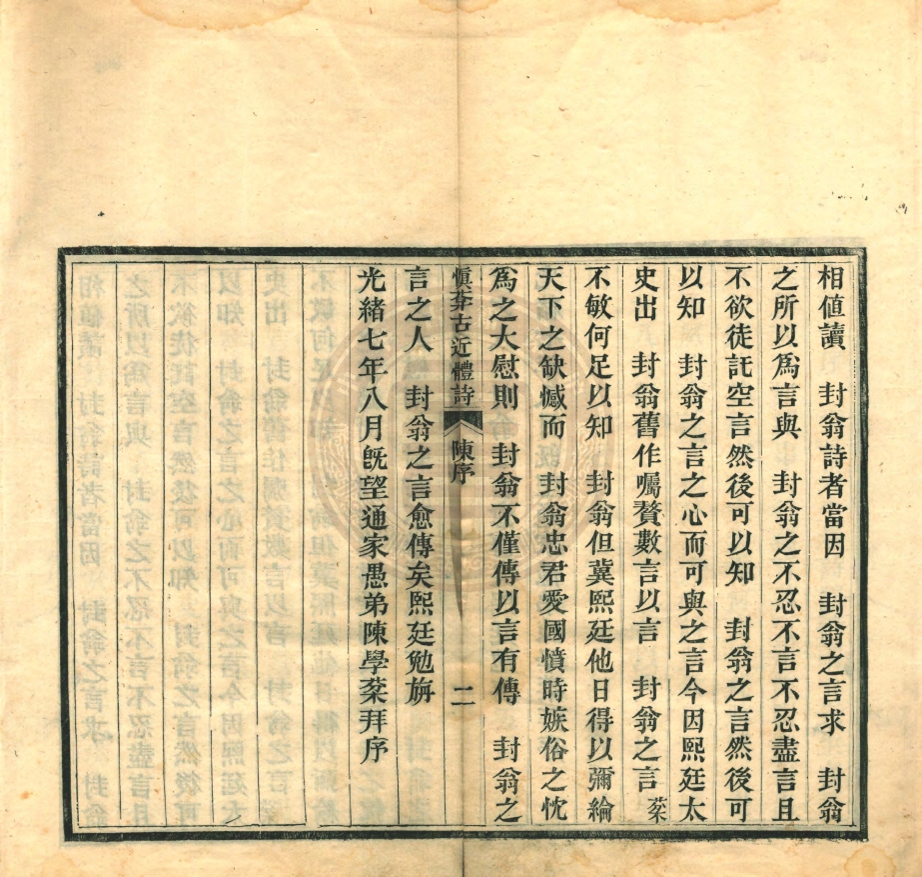 相值讀　封翁詩者當因　封翁之言求　封翁
之所以爲言與　封翁之不忍不言不忍盡言且
不欲徒託空言然後可以知　封翁之言然後可
以知　封翁之言之心而可與之言今因熙廷太
史出　封翁舊作囑贅數言以言　封翁之言棻
不敏何足以知　封翁但冀熙廷他日得以彌綸
天下之缺憾而　封翁忠君愛國憤時嫉俗之忱
爲之大慰則　封翁不僅傳以言有傳　封翁之
愼葊古近體詩　陳序　二
言之人　封翁之言愈傳矣熙廷勉旃
光緒七年八月旣望通家愚弟陳學棻拜序